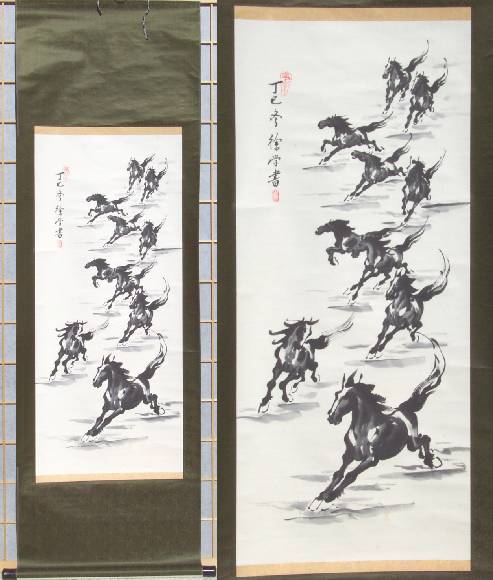 丁巳冬徐堂書
丁巳冬徐堂書